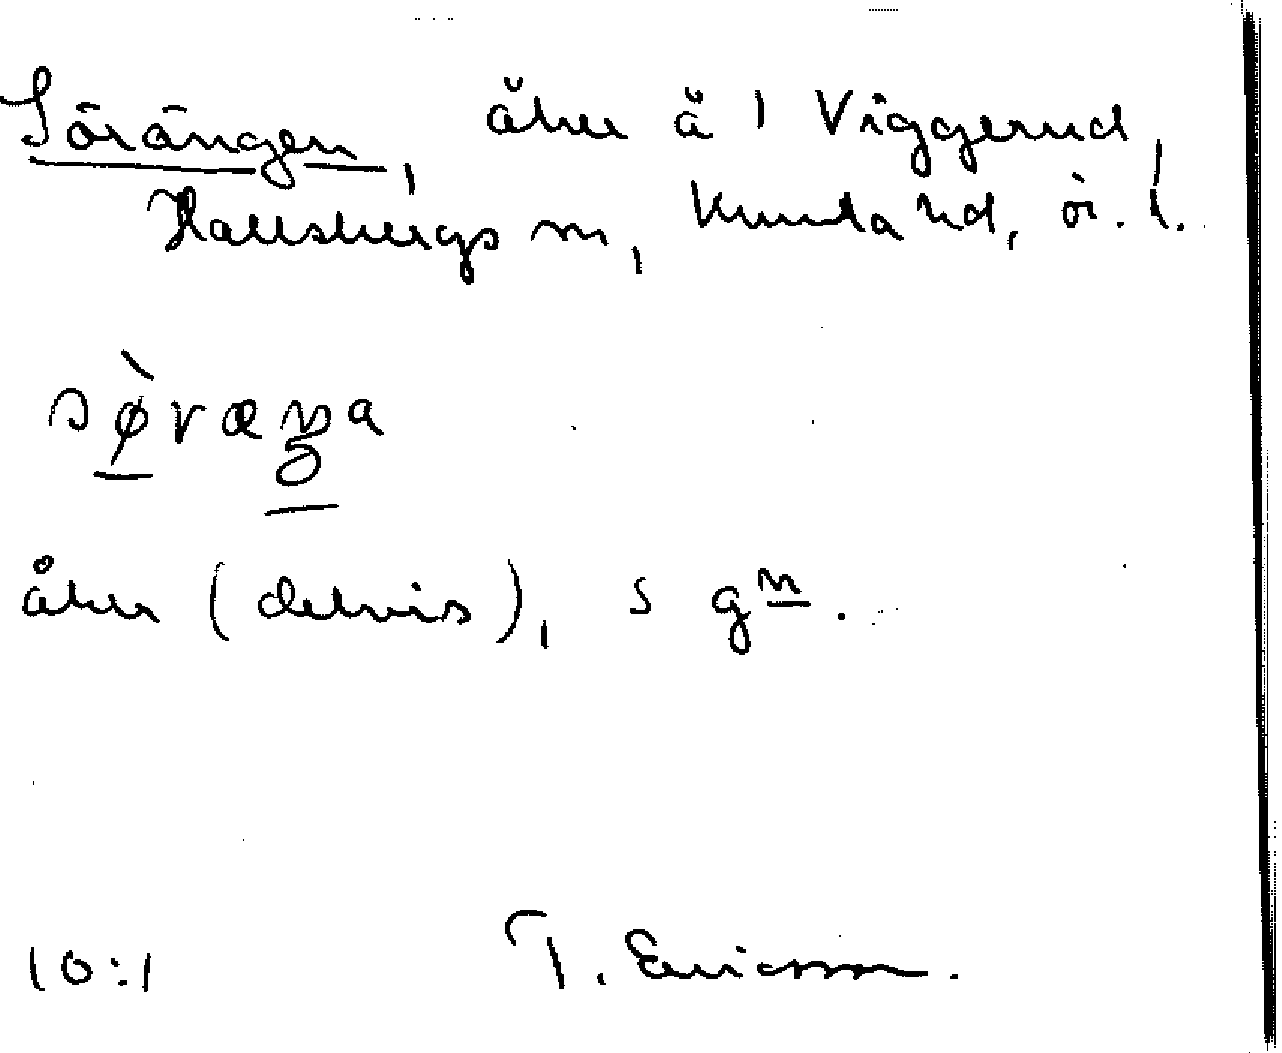 Sörängen, åker å 1 Viggerud,
Hallsbergs sn, Kumla hd, ör. l.
åker (delvis), S gn.
10:1 T. Ericsson.